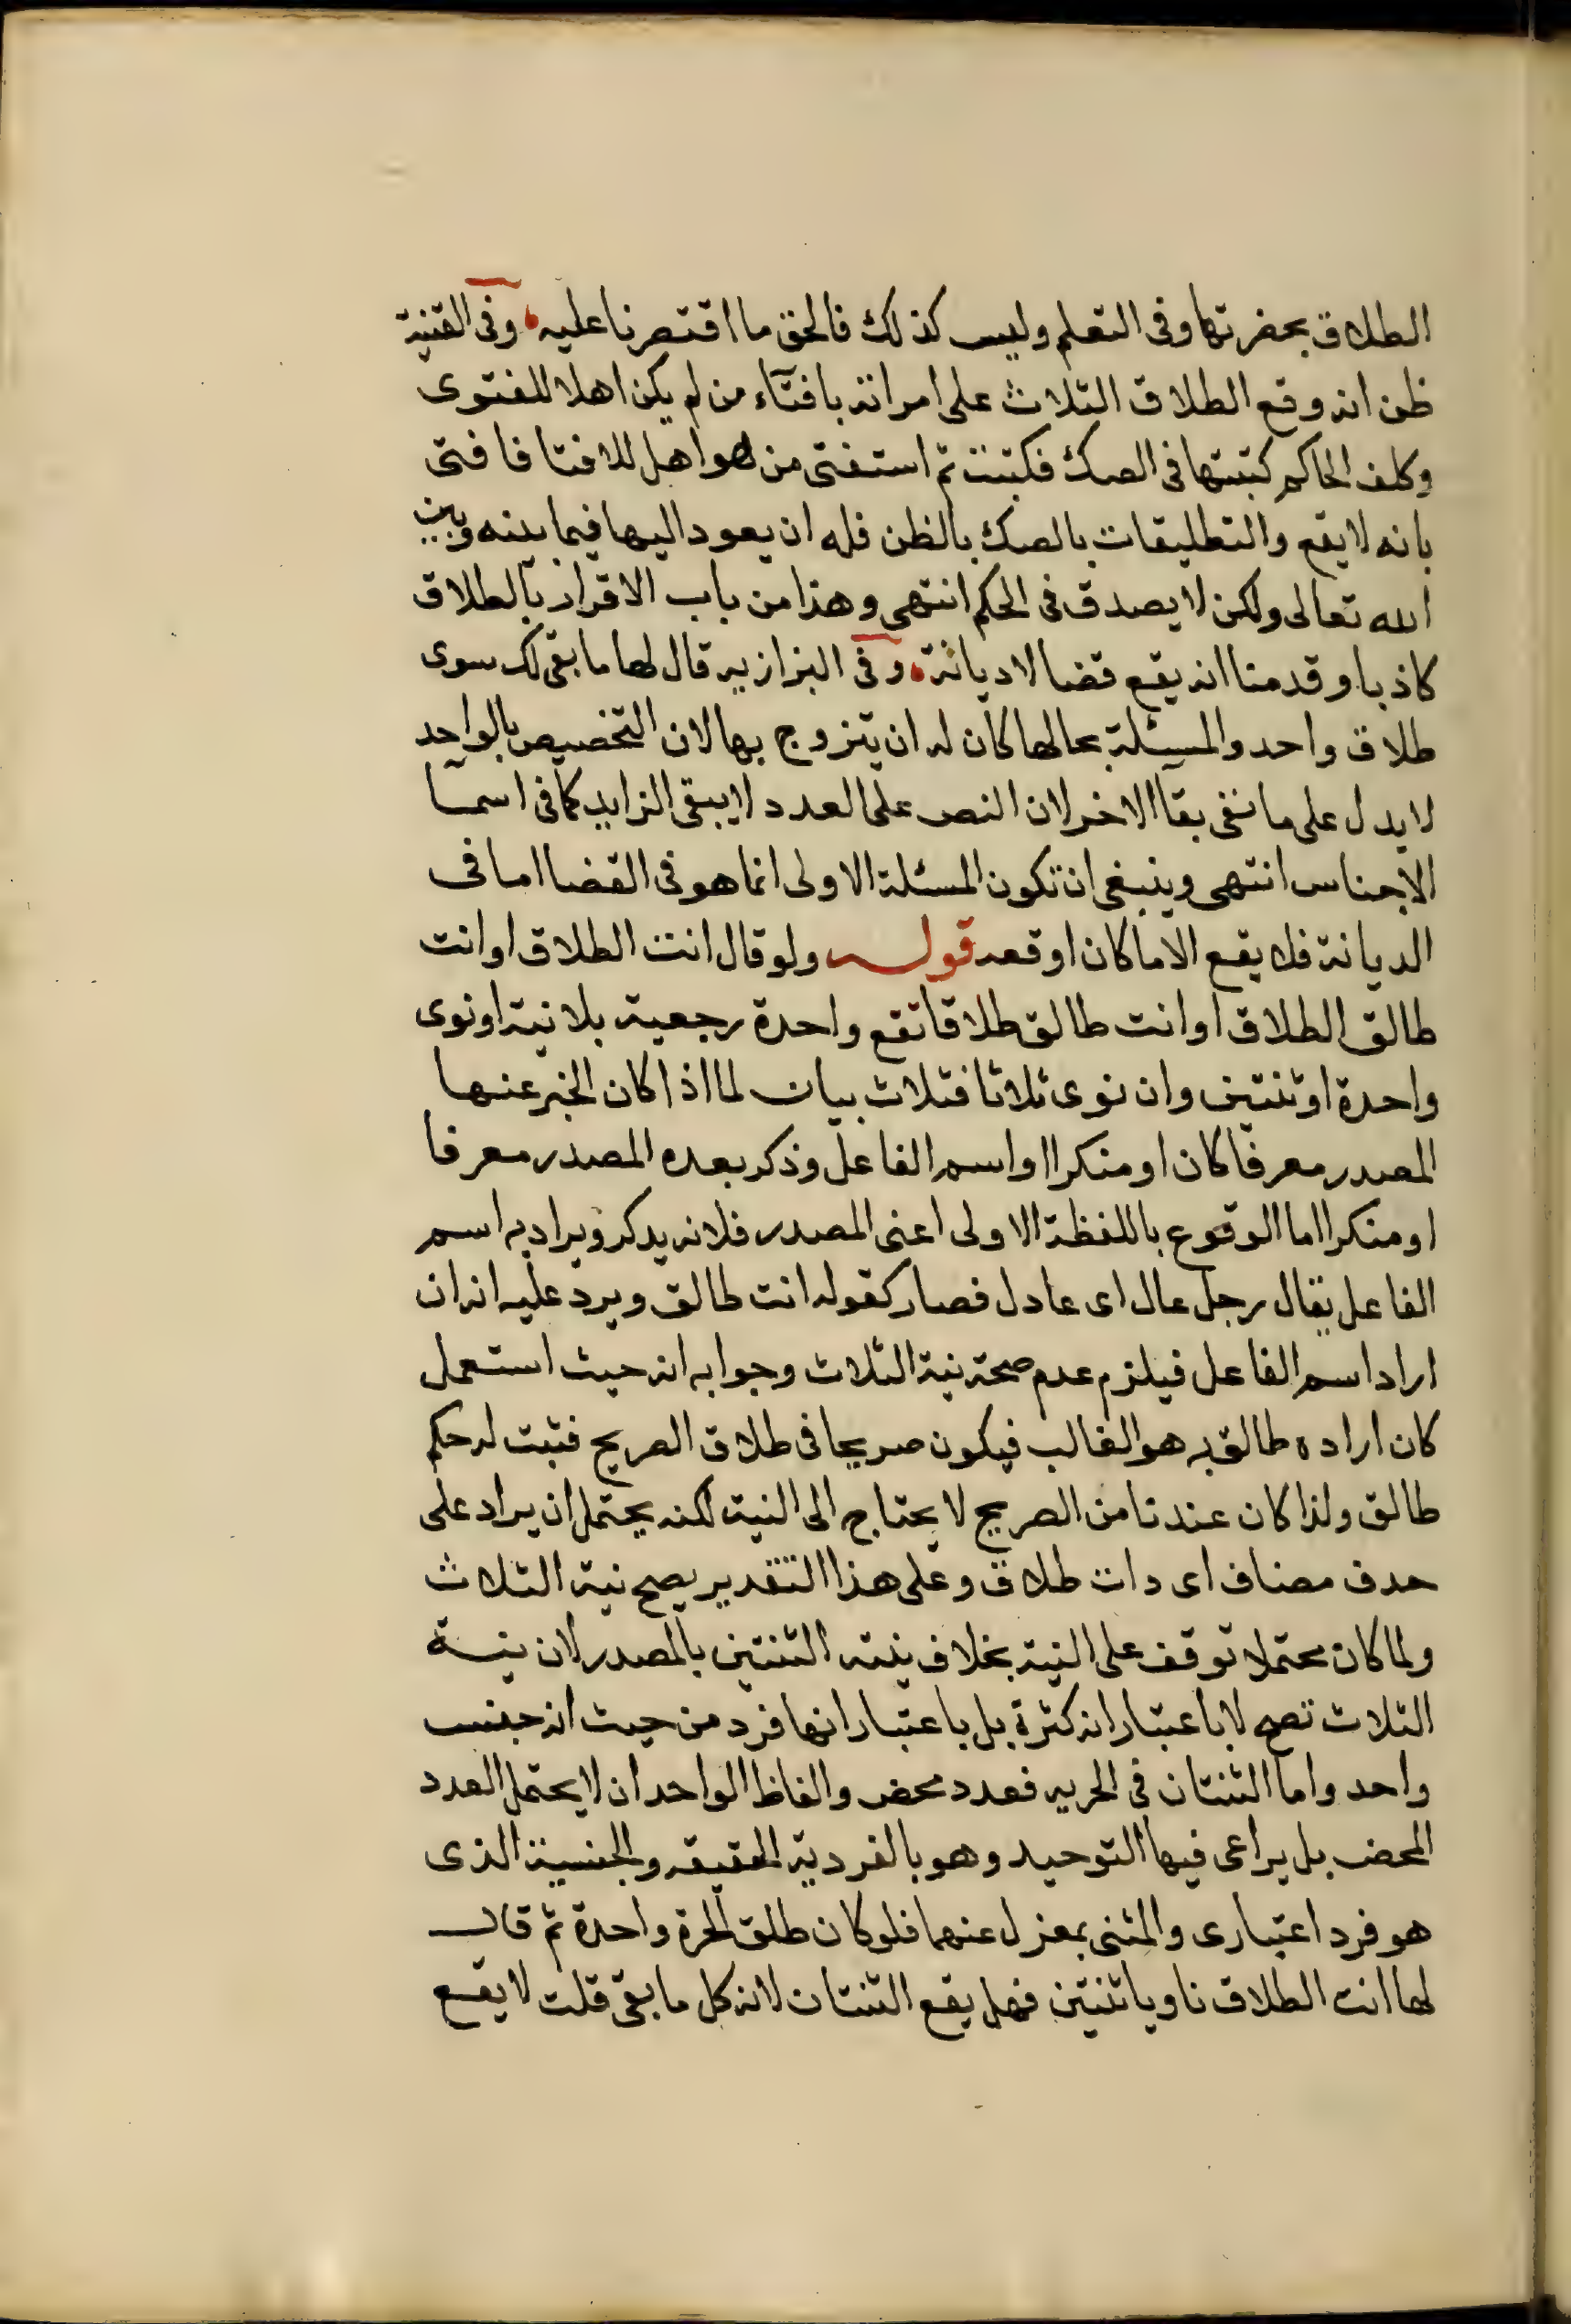 الطلاق بحضرتها وفى التعلم وليس كذلك فالحق ما اقتصرنا عليه وفى القنية
ظن انه وقع الطلاق الثلاث على امراته بافتآء من لم يكن اهلا للفتوى
وكلف الحاكم كتبتها فى الصك فكتبت ثم استفتى من هو اهل للافتا فافتى
بانه لا يقع والتطليقات بالصك بالظن فله ان يعود اليها فيما بينه وبين
الله تعالى ولكن لا يصدق فى الحكم انتهى وهذا من باب الاقرار بالطلاق
كاذبا وقدمنا انه يقع قضا لا ديانة وفى البزازيه قال لها ما بقى لك سوى
طلاق واحد والمسئلة بحالها كان له ان يتزوج بها لان التخصيص بالواحد
لا يدل على ما نفى بقآ الاخر لان النص على العدد لا يبقى الزايد كما فى اسما
الاجناس انتهى وينبغى ان تكون المسئلة الاولى انما هو فى القضا اما فى
الديانة فلا يقع الا ما كان اوقعه قوله ولو قال انت الطلاق او انت
طالق الطلاق او انت طالق طلاقا تقع واحدة رجعية بلا نية او نوى
واحدة او ثنتين وان نوى ثلاثا فثلاث بيان لما اذا كان الخبر عنها
المصدر معرفا كان او منكرا او اسم الفاعل وذكر بعده المصدر معرفا
او منكرا اما الوقوع باللفظة الاولى اعنى المصدر فلانه يدكر ويراد به اسم
الفاعل يقال رجل عال اى عادل فصار كقوله انت طالق ويرد عليه انه ان
اراد اسم الفاعل فيلزم عدم صحة نية الثلاث وجوابه انه حيث استعمل
كان اراده طالق به هو الغالب فيكون صريحا فى طلاق الصريح فثبت له حكم
طالق ولذا كان عندنا من الصريح لا يحتاج الى النية لكنه يحتمل ان يراد على
حدف مضاف اى دات طلاق وعلى هذا التقدير يصح نية الثلاث
ولما كان محتملا توقف على النية بخلاف نيته الثنتين بالمصدر لان نية
الثلاث تصح لا باعتبار انه كثرة بل باعتبار انها فرد من حيث انه جنس
واحد واما الثنتان فى الحريه فعدد محض والفاظ الواحدان لا يحتمل العدد
المحض بل يراعى فيها التوحيد وهو بالفردية الحقيقه والجنسية الذى
هو فرد اعتبارى والمثنى بمعزل عنهما فلو كان طلق الحرة واحدة ثم قال
لها انت الطلاق ناويا ثنتين فهل يقع الثنتان لانه كل ما بقى قلت لا يقع